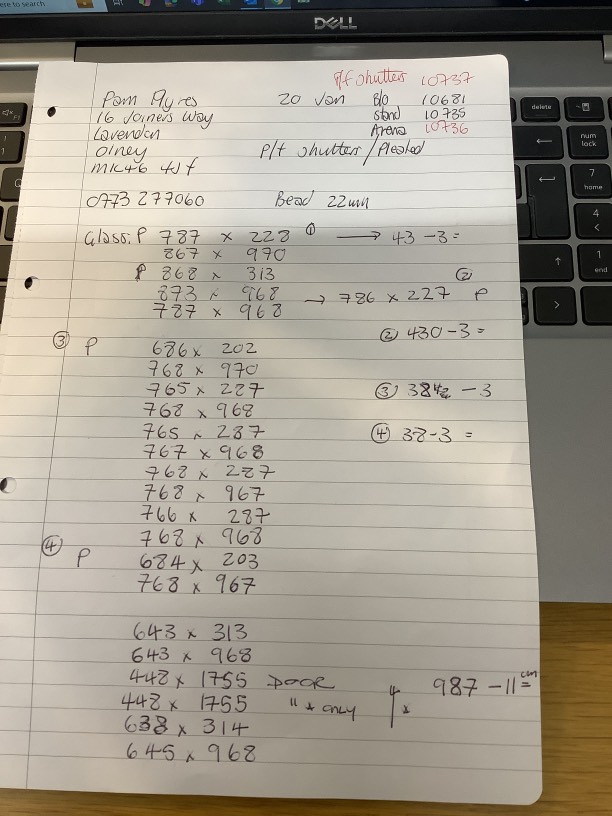 ere to search
DELL
P/f shutters 10737
Pam Ayres 20 Jan B/o 10681
16 Joiners Way stand 10735
Lavendon Arena 10736
Olney P/f shutters / Pleated
MK46 4JF
0773 277060 Bead 22mm
Glass: P 787 x 228 ① → 43 -3 =
867 x 970
P 868 x 313
873 x 968 → 786 x 227 ② P
787 x 968
② 430 -3 =
③ P 686 x 202
768 x 970
765 x 287 ③ 38 1/2 -3
768 x 968
765 x 287 ④ 38-3 =
767 x 968
768 x 287
768 x 967
766 x 287
768 x 968
④ P 684 x 203
768 x 967
643 x 313
643 x 968
448 x 1755 DOOR 987 -11 = cm
448 x 1755 " * only
638 x 314
645 x 968
delete
num lock
7 home
4
1 end